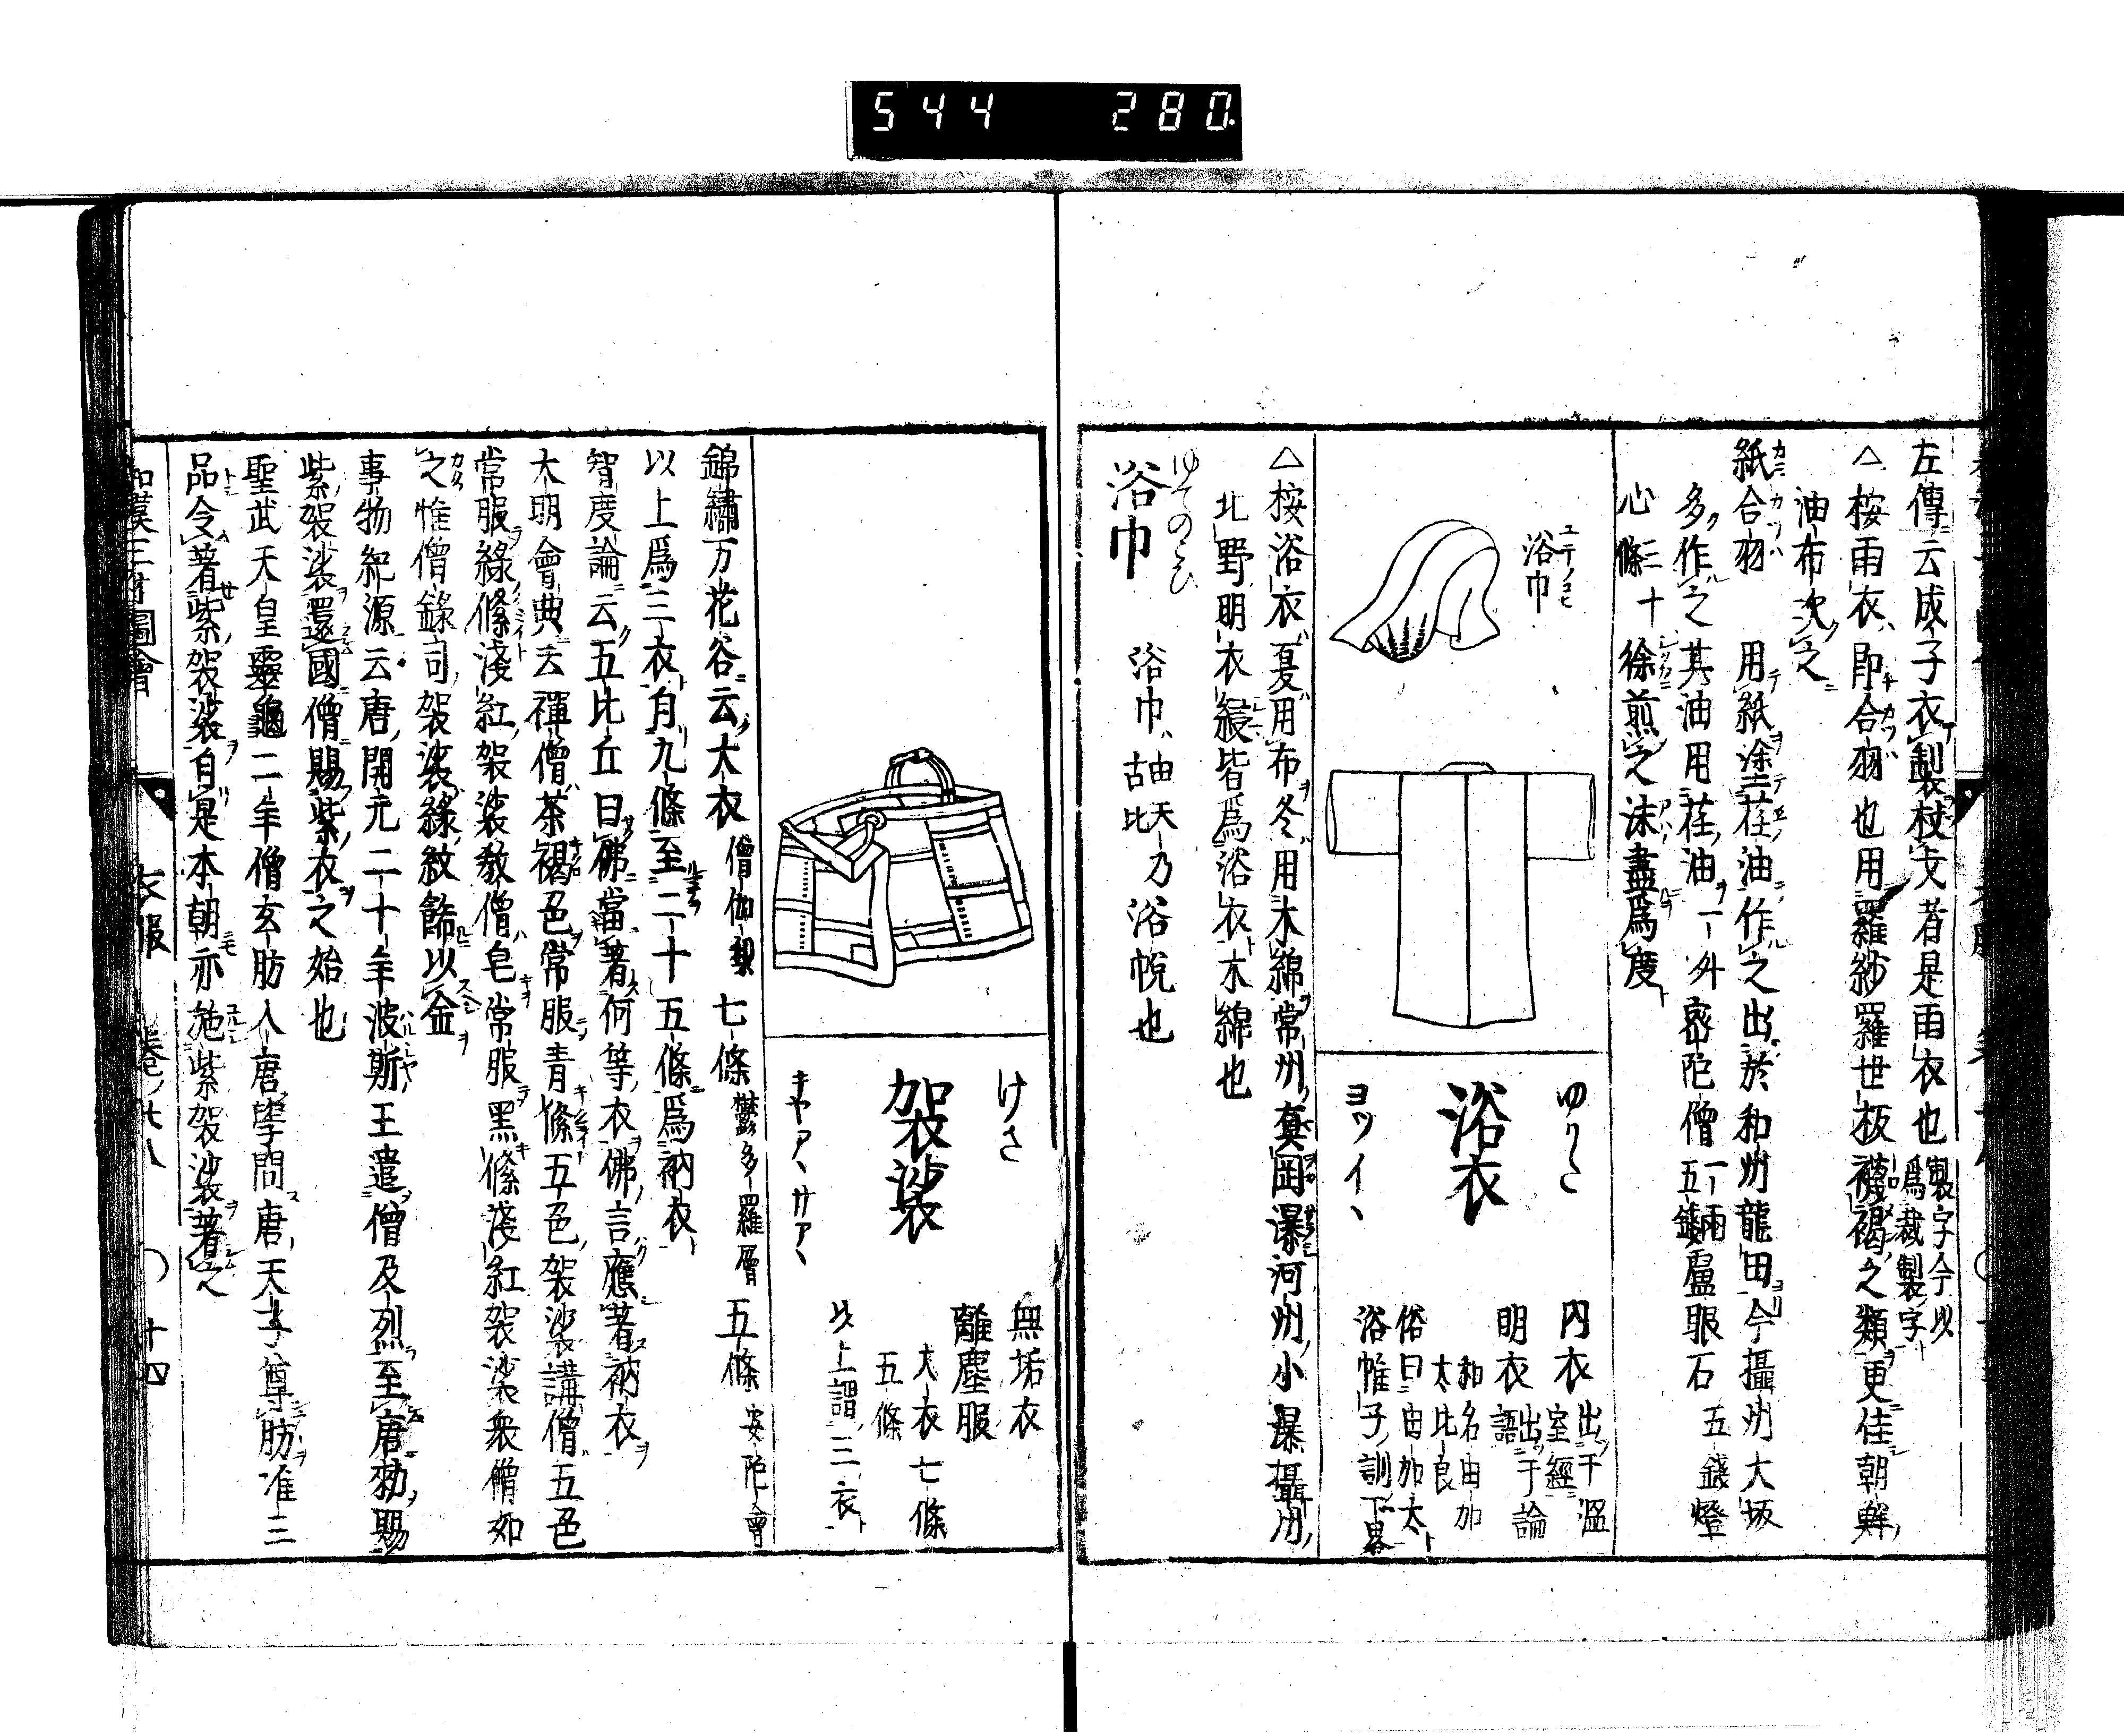 544 280
左傳云成子衣製杖戈者是雨衣也 製字今以爲裁製字
△桉雨衣即合羽也用羅紗羅世板襪褐之類更佳朝鮮
油布次之
紙合羽 用紙塗荏油作之出於和州龍田今攝州大坂
多作之其油用荏油一升密陀僧一兩五錢 盧眼石 五錢 燈
心 三十條 徐煎之沫盡爲度
ユテノゴヒ
浴巾
ゆかた
浴衣
ヨツイ丶
内衣 出于溫室經
明衣 出于論語
和名由加太比良
俗曰由加太
浴帷子訓下畧
△桉浴衣夏用布冬用木綿常州眞岡瀑河州小瀑攝州
北野明衣縵皆爲浴衣木綿也
ゆてのごひ
浴巾 浴巾 由天乃古比 浴帨也
けさ
袈裟
キヤア丶サア丶
無垢衣
離塵服
大衣 七條
五條
以上謂三衣
錦繡万花谷云大衣 僧伽梨 七條 鬱多羅層 五條 安陀會
以上爲三衣自九條至二十五條爲衲衣
智度論云五比丘曰佛當著何等衣佛言應著衲衣
大明會典云禪僧茶褐色常服青條五色袈裟講僧五色
常服綠條淺紅袈裟教僧皂常服黑條淺紅袈裟衆僧如
之惟僧錄司袈裟綠紋餙以金
事物紀源云唐開元二十年波斯王遣僧及烈至唐勑賜
紫袈裟還國僧賜紫衣之始也
聖武天皇靈龜二年僧玄肪入唐學問唐天子尊肪准三
品令著紫袈裟自是本朝亦施紫袈裟著之
和漢三才圖會 衣服 卷ノ廿八 〇十四